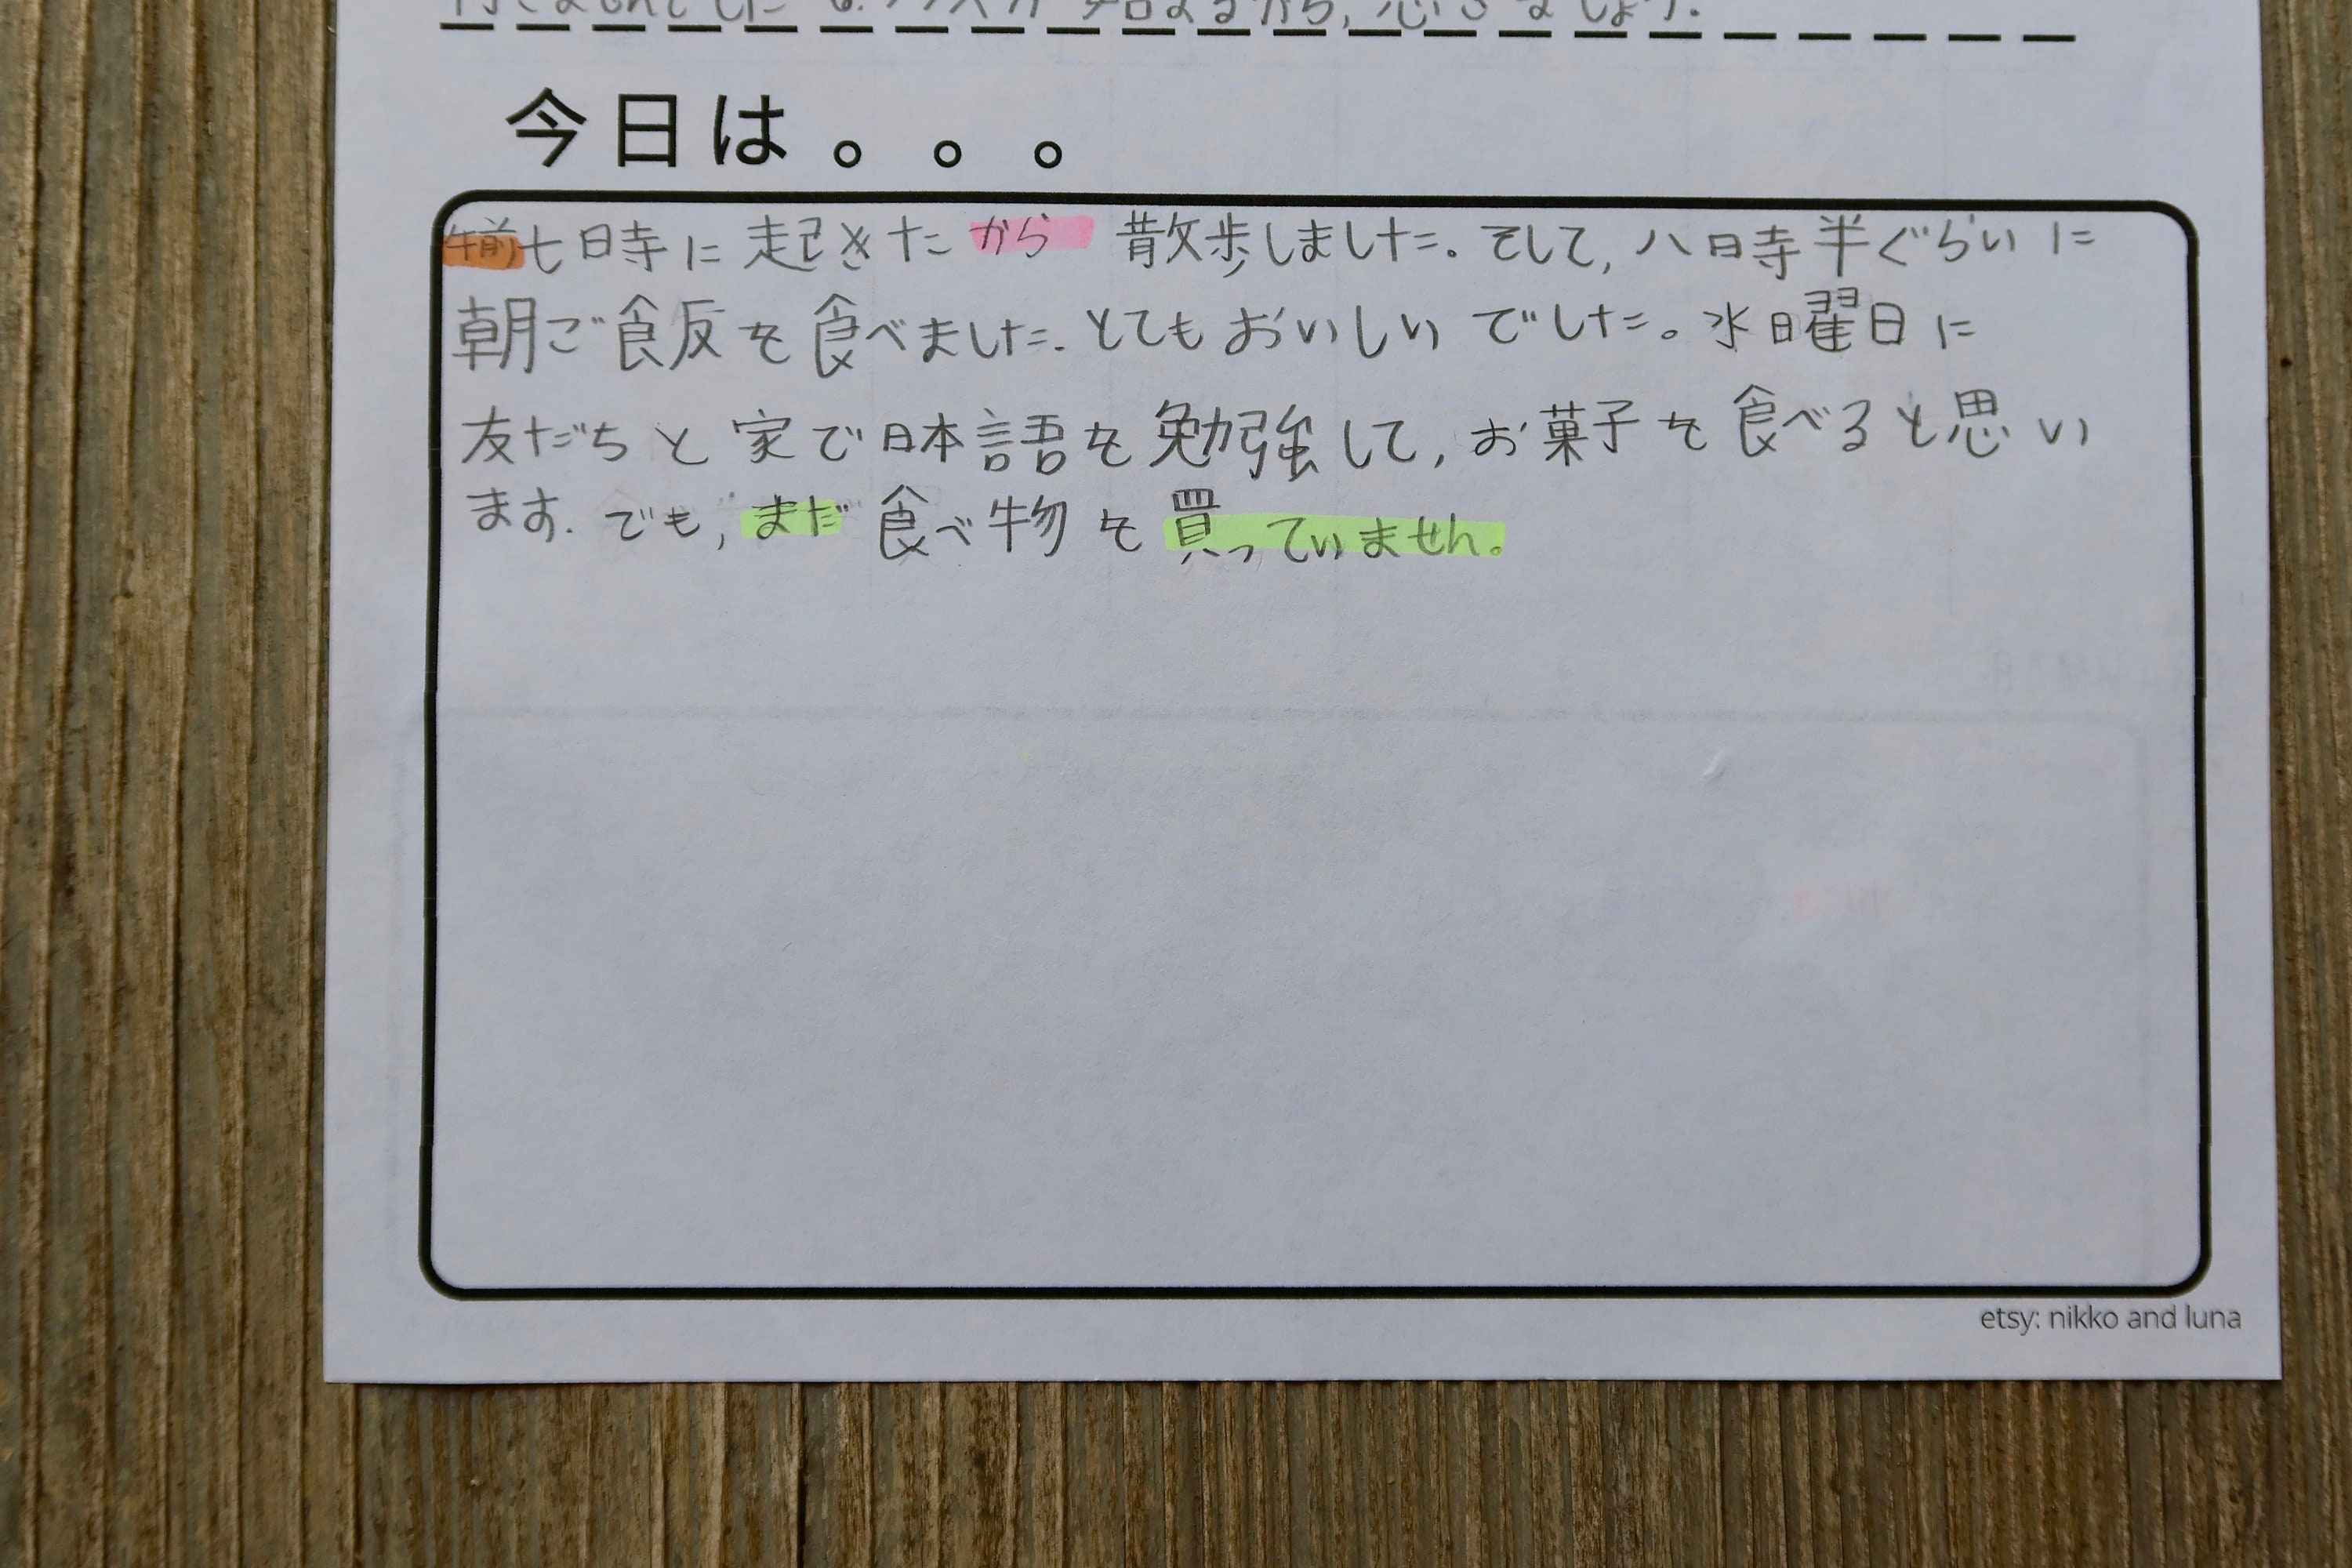 始まるから,
今日は。。。
午前七時に起きたから 散歩しました。そして, 八時半ぐらいに
朝ご飯を食べました. とてもおいしいでした。水曜日に
友だちと家で日本語を勉強して, お菓子を食べると思い
ます. でも, まだ食べ物を買っていません。
etsy: nikko and luna